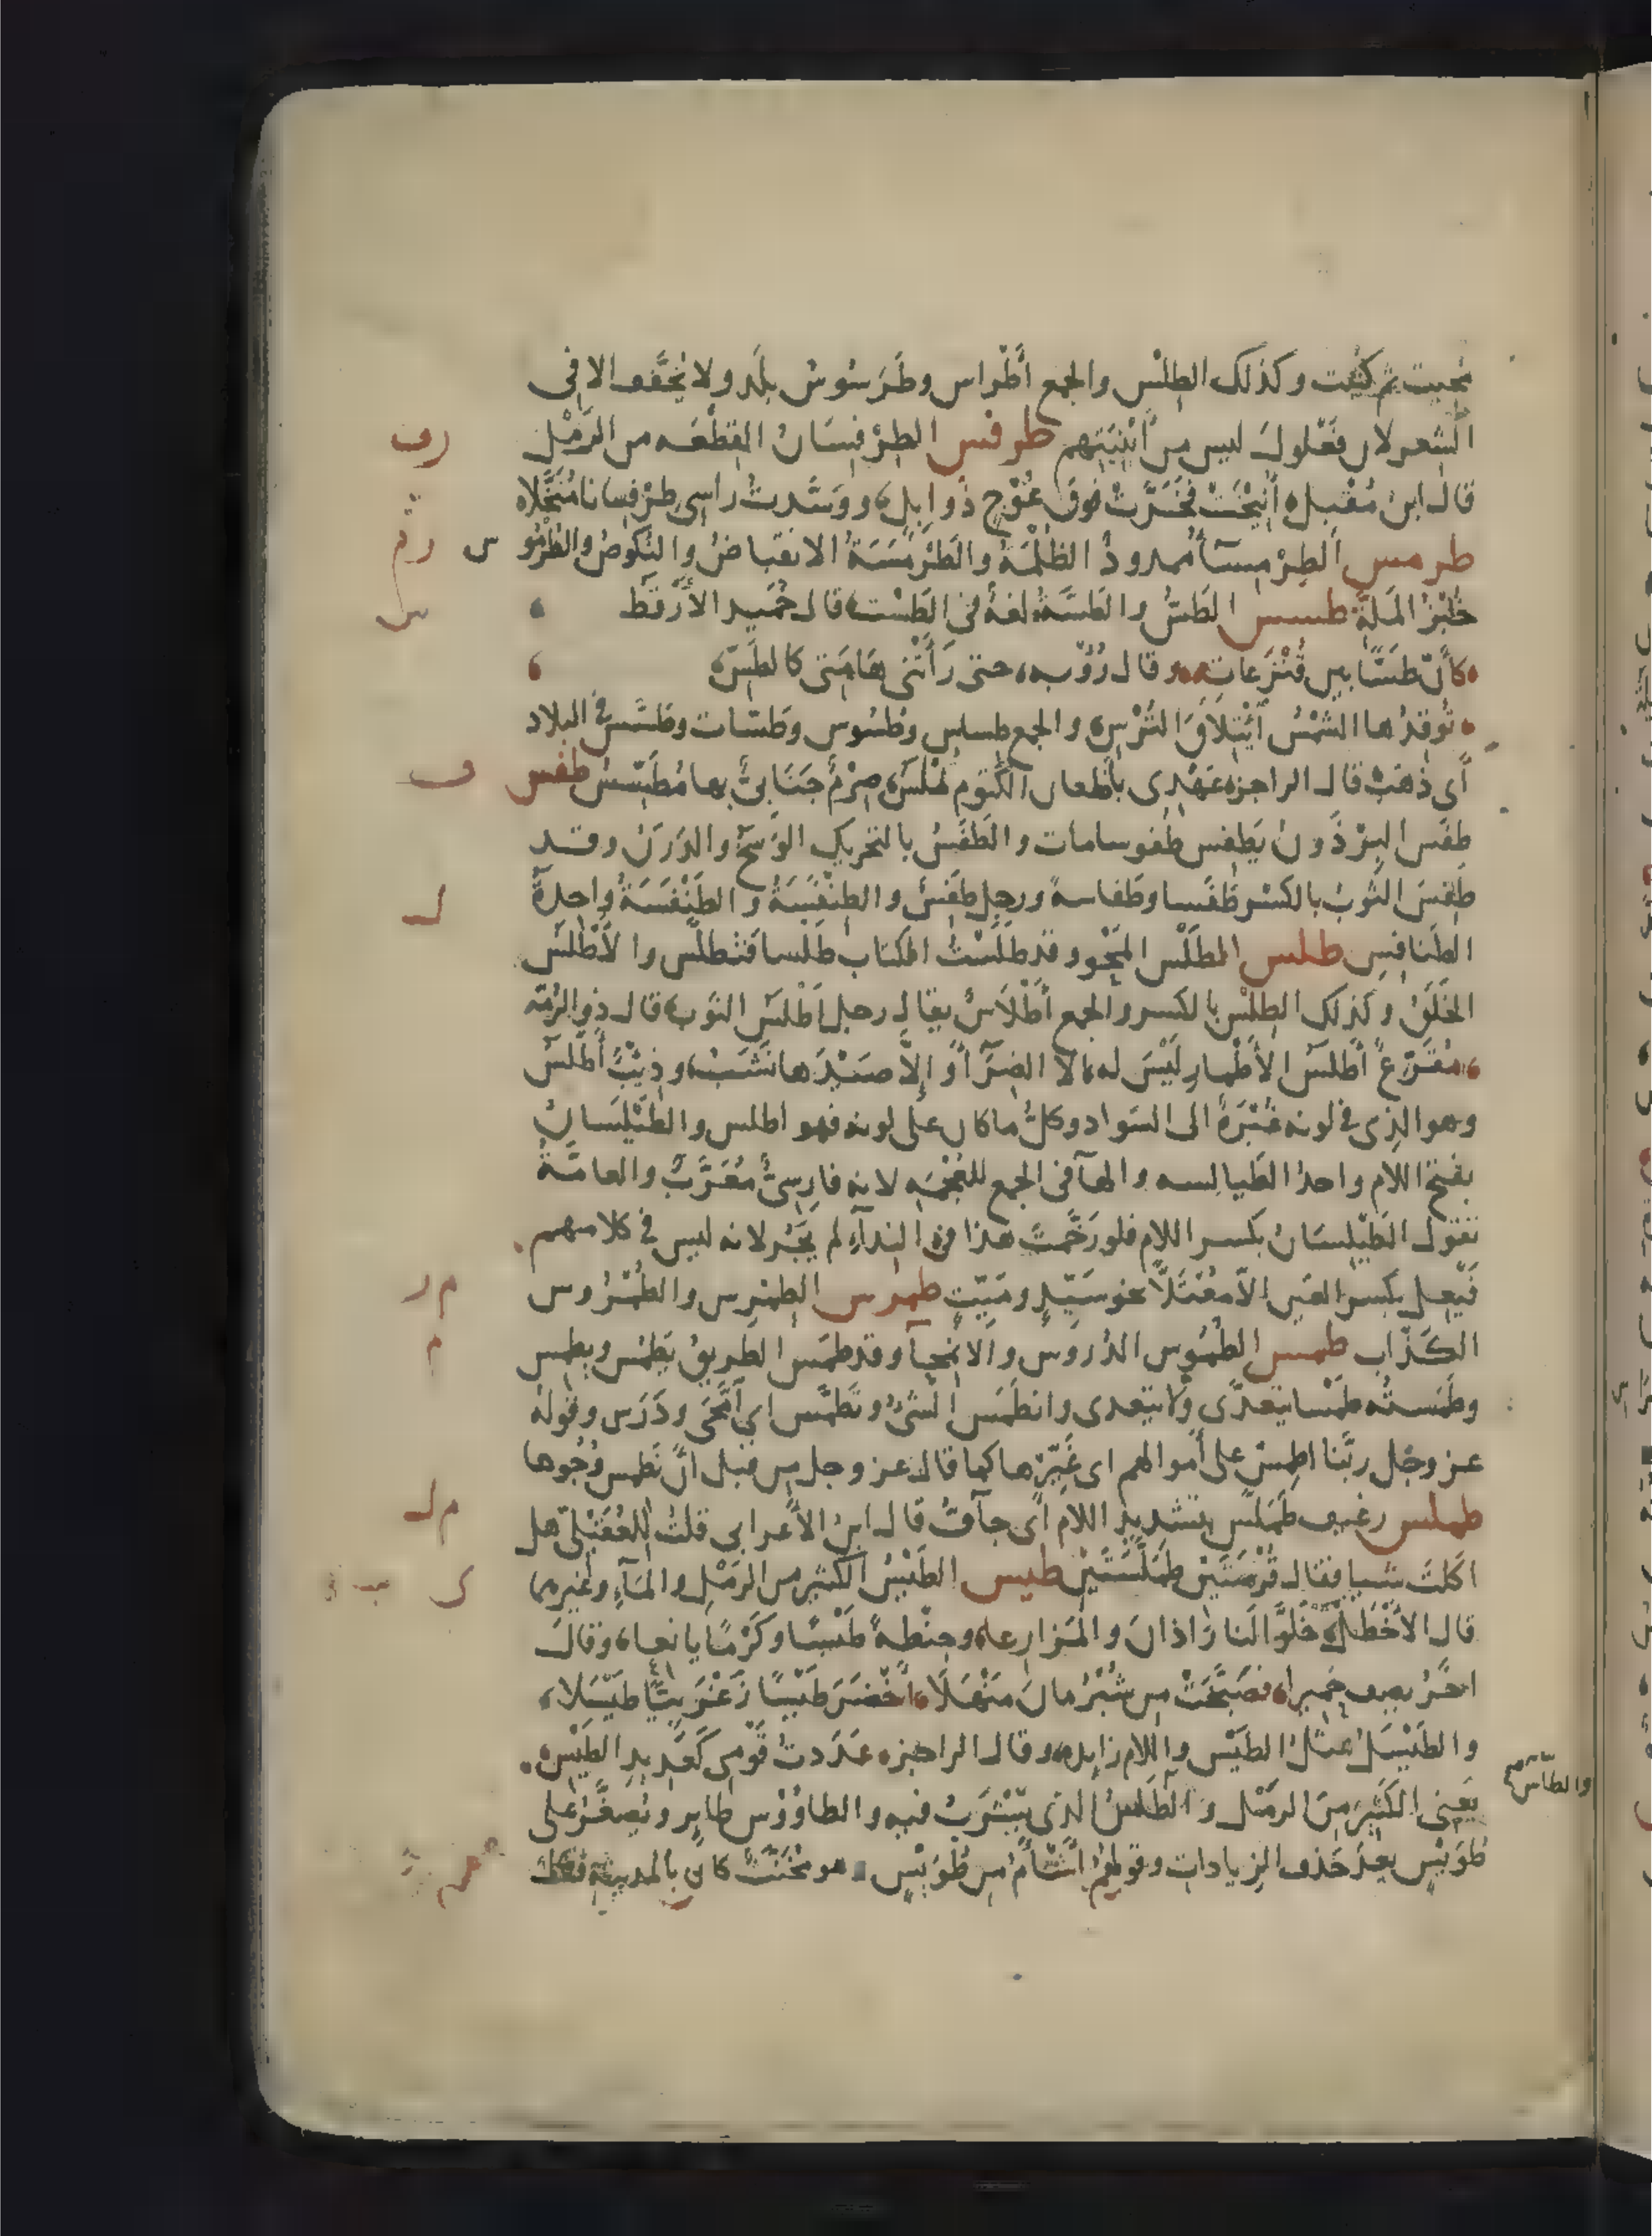 محيت ثم كتبت وكذلك الطِلْس والجمع أَطْراس وطَرَسُوسُ بلَد ولا يخَفَّف الا في
الشعر لان فَعْلولَ ليس من أَبْنِيَتِهم طرفس الطِرْفِسَانُ القِطْعَه من الرَمْل
قال ابن مُقْبِل أُنِيخَتْ فَخَرَّتْ فوقَ عُوْجٍ ذَوابِلٍ ووَسَّدتُ راسي طِرْفِسانا مُنَخَّلا
طرمس الطِرْمِسَآءُ ممدودٌ الظُلْمَة والطَرْمَسَةُ الانقباضُ والنُكوصُ والطُرْمُو س
خُبْزُ المَلَّةِ طسس الطَسُّ والطَسَّةُ لغةٌ في الطَسْت قال حُمَيد الأَرْقَط
كأنّ طَسًّا بين قُنْزُعاتِه وقال رُؤبه حتى رَأَتْني هَامَتي كالطَسِّ
تُوقِدُها الشَمْسُ ٱئْتِلَاقَ التُرْسِ والجمع طساس وطُسُوس وطَسّات وطَسَّسَ في البلاد
أي ذَهَبَ قال الراجز عَهْدِي بأَظعان الكَتومِ تُمْلَسُ صِرْمٌ جَنَابِيٌّ بها مُطَسِّسُ طفس
طفَس البِرْذَونُ يَطفِس طُفوسا مات والطَفَسُ بالتحريك الوَسَخُ والدَرَنُ وقد
طَفِسَ الثَوبُ بالكسْر طَفَسا وطَفاسةً ورجل طَفِسٌ والطِنْفِسَةُ والطَنْفَسَةُ واحِدةُ
الطَنافِسِ طلس الطَلْس المَحْو وقد طَلَسْتُ الكتابَ طَلْسا فتَطلَّس والأَطْلَسُ
الخَلَقُ وكذلك الطِلْسُ بالكسر والجمع أَطْلَاسٌ يقال رجل أَطْلَسُ الثَوبِ قال ذو الرُمّه
مُقَزَّعٌ أَطلَسُ الأَطْمارِ لَيْسَ له الا الضِرَآءَ وإِلّا صَيْدَها نَشَبُ وذِئْبٌ أَطْلسُ
وهو الذي في لونه غُبْرَةٌ الى السَواد وكلُّ ما كان على لونه فهو اطلس والطَيْلَسَانُ
بفتح اللام واحدُ الطَيالسه والهآ في الجمع للعُجْمَه لانه فارسيٌّ مُعَرَّبٌ والعامَّةُ
تقول الطَيْلِسَانُ بكسر اللام فلو رَخَّمتَ هذا في النِدآءِ لم يَجُز لانه ليس في كلامهم
فَيْعِل بكسر العَين الا مُعْتَلًّا نحو سَيِّدٍ ومَيِّتٍ طمرس الطِمْرِس والطُمْرُوس
الكَذّاب طمس الطُمُوس الدُرُوس والانْمِحآء وقد طمَس الطريقُ يَطمُس ويطمِس
وطَمَسْتُه طَمْسا يتعدّى ولا يتعدى وانطَمَس الشيءُ وتَطَمَّس اي ٱمَّحَى ودَرَس وقوله
عز وجل ربَّنا اطمِسْ على أَموالهم اى غَيِّرْها كما قال عز وجل من قبل أنْ نَطمس وُجُوها
طملس رغيف طَمَلَّس بتشديد اللام أي جآفٌّ قال ابن الأعرابى قلتُ للعُقَيْليّ هل
اكلتَ شيا فقال قُرْصَتَيْنِ طَمَلَّسَتَيْنِ طيس الطَيْسُ الكثير من الرَمْلِ والمَآءِ وغيرهما
قال الأَخْطَل خَلَّوْا لَنا رَاذانَ والمَزارِعا وحِنْطةً طَيْسًا وكَرْمًا يانعا وقال
اخَرُ يصف حَميرا فصَبَّحَتْ من شُبْرُمانَ مَنْهَلَا أَخْضَرَ طَيْسًا زَغْرَبِيًّا طَيْسَلا
والطَيْسَلُ مثلُ الطَيْس واللام زايده وقال الراجز عَدَدتُ قَوْمِي كَعَدِيدِ الطَيْسِ
يَعني الكَثِيرَ مِنَ الرَمْل والطَاسُ الذي يُشْرَبُ فيه والطاوُوس طاير ويُصَغَّر على
طُوَيْسٍ بعدَ حَذف الزيادات وقولهم أَشْأَمُ من طُوَيْسٍ هو مُخَنَّثٌ كان بالمدينة
والطاسُ